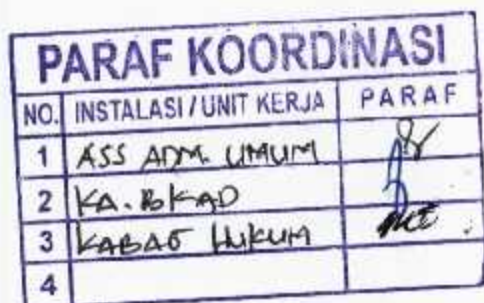 PARAF KOORDINASI
NO. INSTALASI / UNIT KERJA PARAF
1 ASS ADM. UMUM
2 KA. BKAD
3 KABAG HUKUM
4